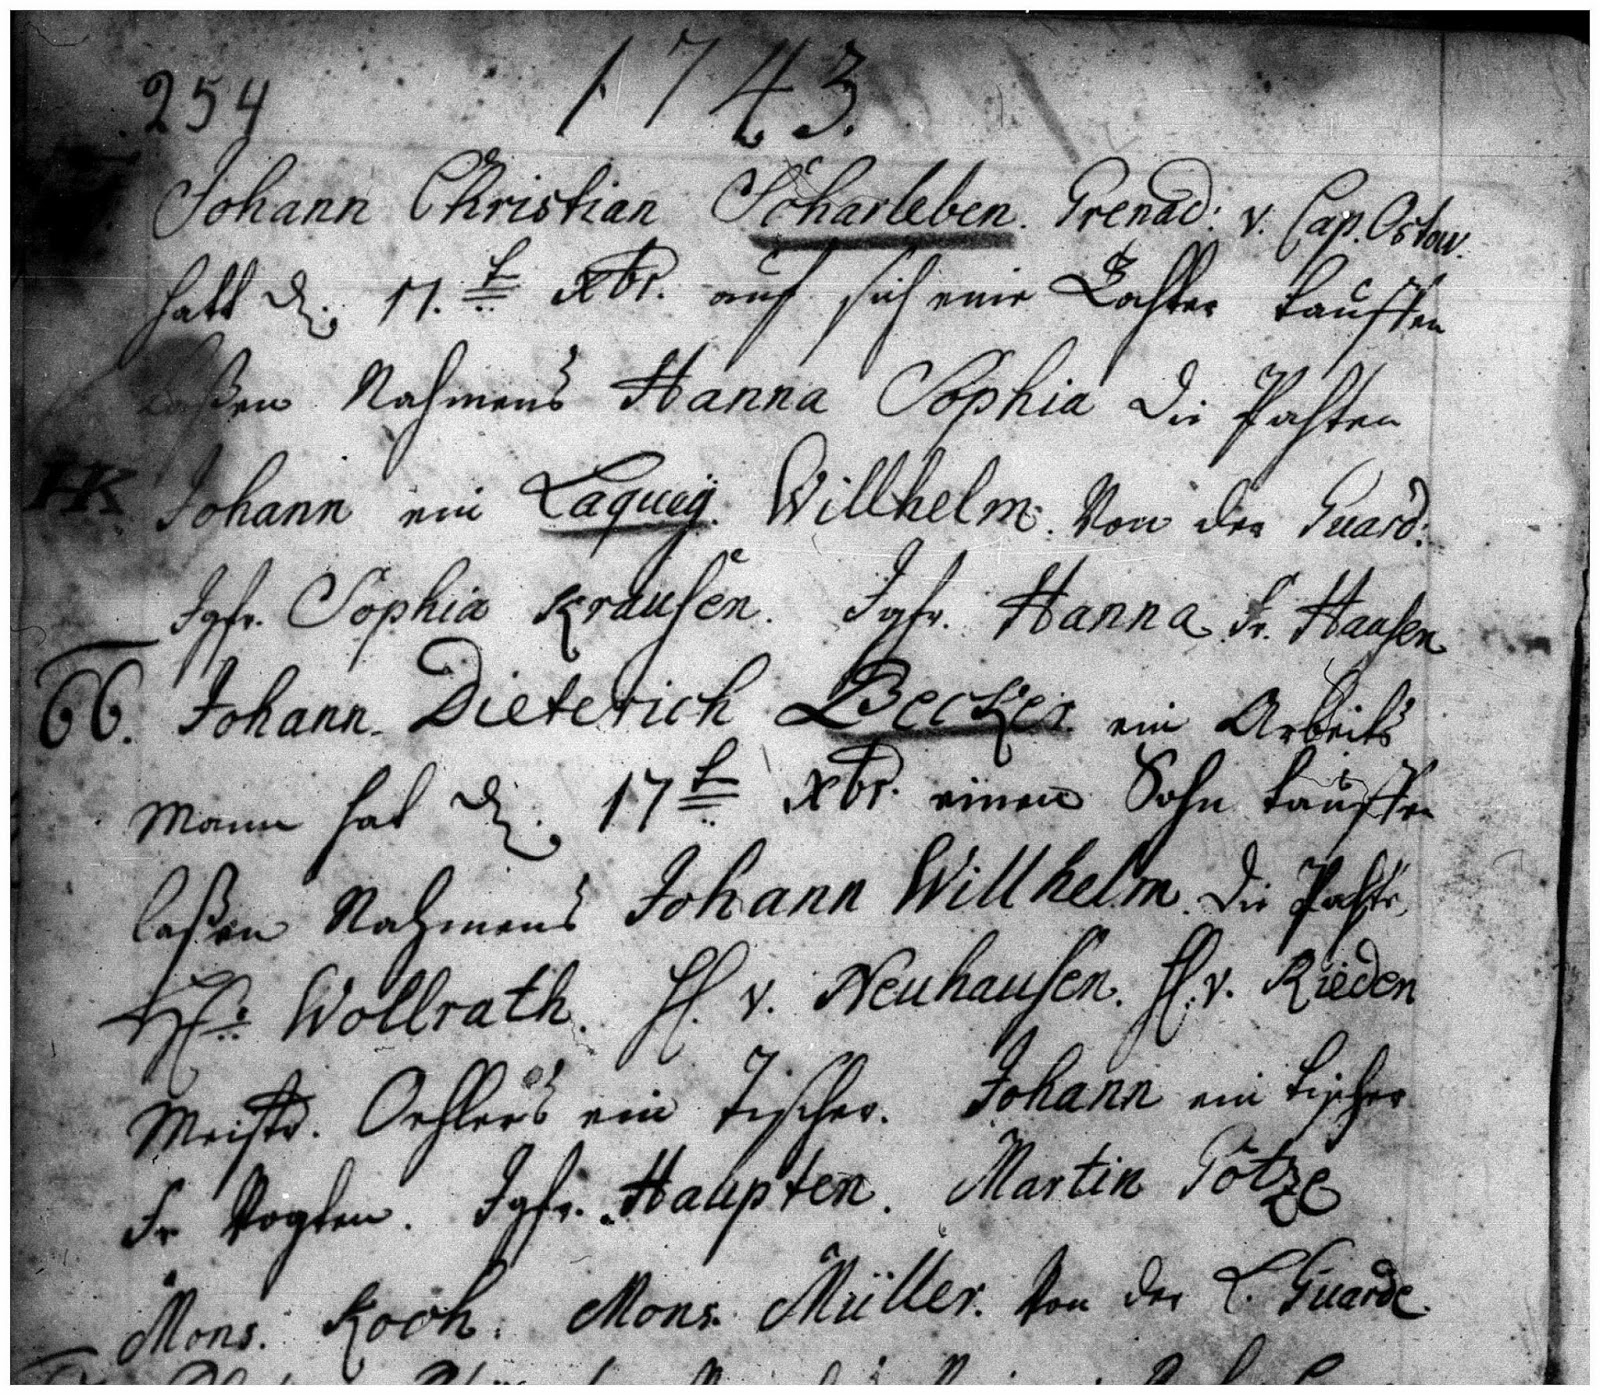 254 1743.
Johann Christian Scharleben. Grenad: v. Cap. Ostow.
hatt d. 17.t xbr. auf sich eine Tochter tauffen
laßen Nahmens Hanna Sophia die Pahten
HK Johann ein Laquay. Willhelm. Von der Guard:
Jgfr. Sophia Krausen. Jgfr. Hanna Fr. Hausen
66. Johann Dieterich Becker ein Arbeits
Mann hat d. 17t xbr. einen Sohn tauffen
laßen Nahmens Johann Willhelm. die Pahte
Wollrath. H. v. Neuhausen. H. v. Rieden
Meistr. Oehlers ein Tischer. Johann ein tischer
Fr Vogten. Jgfr. Haupten. Martin Götze
Mons. Koch. Mons. Müller. Von der L. Guarde.